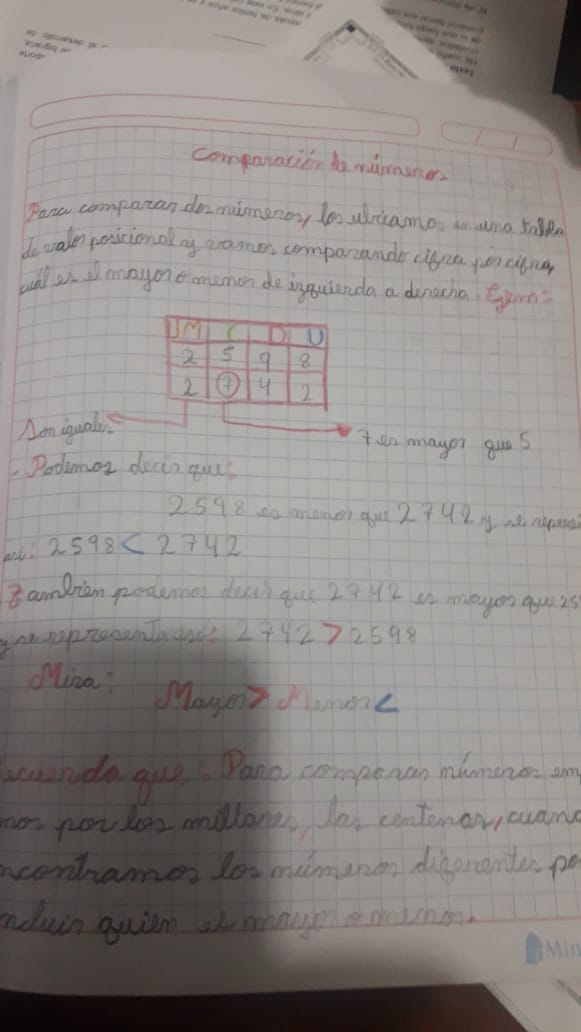 Comparación de números.
Para comparar dos números, los ubicamos en una tabla
de valor posicional y vamos comparando cifra por cifra,
cuál es el mayor o menor de izquierda a derecha. Ejem:
UM C D U
2 5 9 8
2 7 4 2
Son iguales
7 es mayor que 5
- Podemos decir que:
2598 es menor que 2742 y se represe
así: 2598 < 2742
También podemos decir que 2742 es mayor que 25
y se representa así: 2742 > 2598
Mira:
Mayor > Menor <
ecuerda que: Para comparar números em
mos por los millares, las centenas, cuand
ncontramos los números diferentes po
ncluir quien es mayor o menor.
Min